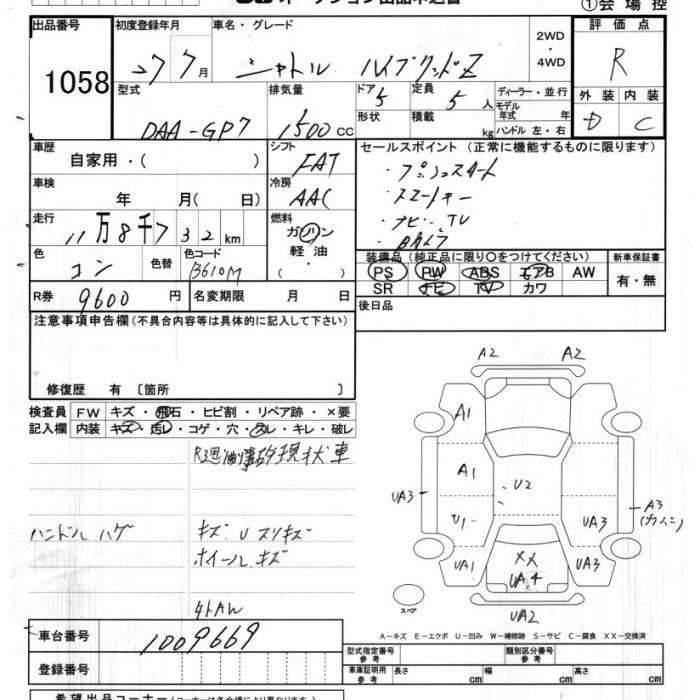 ①会場控
出品番号
1058
初度登録年月
27 7月
車名・グレード
シャトル ハイブリッドZ
2WD
・
4WD
評価点
R
外装 内装
D C
型式
DAA-GP7
排気量
1500 cc
ドア 5
定員 5 人
形状
積載 kg
ディーラー・並行
モデル年式 年
ハンドル 左・右
車歴
自家用・( )
シフト
FAT
セールスポイント (正常に機能するものに限ります)
・プッシュスタート
・スマートキー
・ナビ・TV
・Bカメラ
車検
年 月( 日)
冷房
AAC
走行
11万8千732km
燃料
ガソリン
軽油
・( )
色
コン
色替
色コード
B610M
装備品 (純正品に限り○をつけてください)
PS PW ABS エアB AW
SR ナビ TV カワ
新車保証書
有・無
R券
9600 円
名変期限 月 日
後日品
注意事項申告欄 (不具合内容等は具体的に記入して下さい)
修復歴 有 〔箇所 〕
検査員 FW キズ・飛石・ヒビ割・リペア跡・×要
記入欄 内装 キズ・汚レ・コゲ・穴・スレ・キレ・破レ
現状車
ハンドルハゲ
キズ U スリキズ
ホイールキズ
A2 A2
A1
A1
U2
UA3
U1
UA3
A3
UA1
XX
UA4
UA3
スペア
UA2
A-キズ E-エクボ U-凹み W-補修跡 S-サビ C-腐食 XX-交換済
車台番号
1009669
登録番号
型式指定番号
参考
類別区分番号
参考
車庫証明用
参考
長さ cm
幅 cm
高さ cm